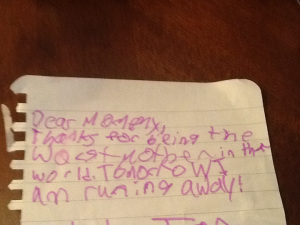 Dear Mommy,
Thanks for being the
Worst mother in the
world. Tomorrow I
am runing away!